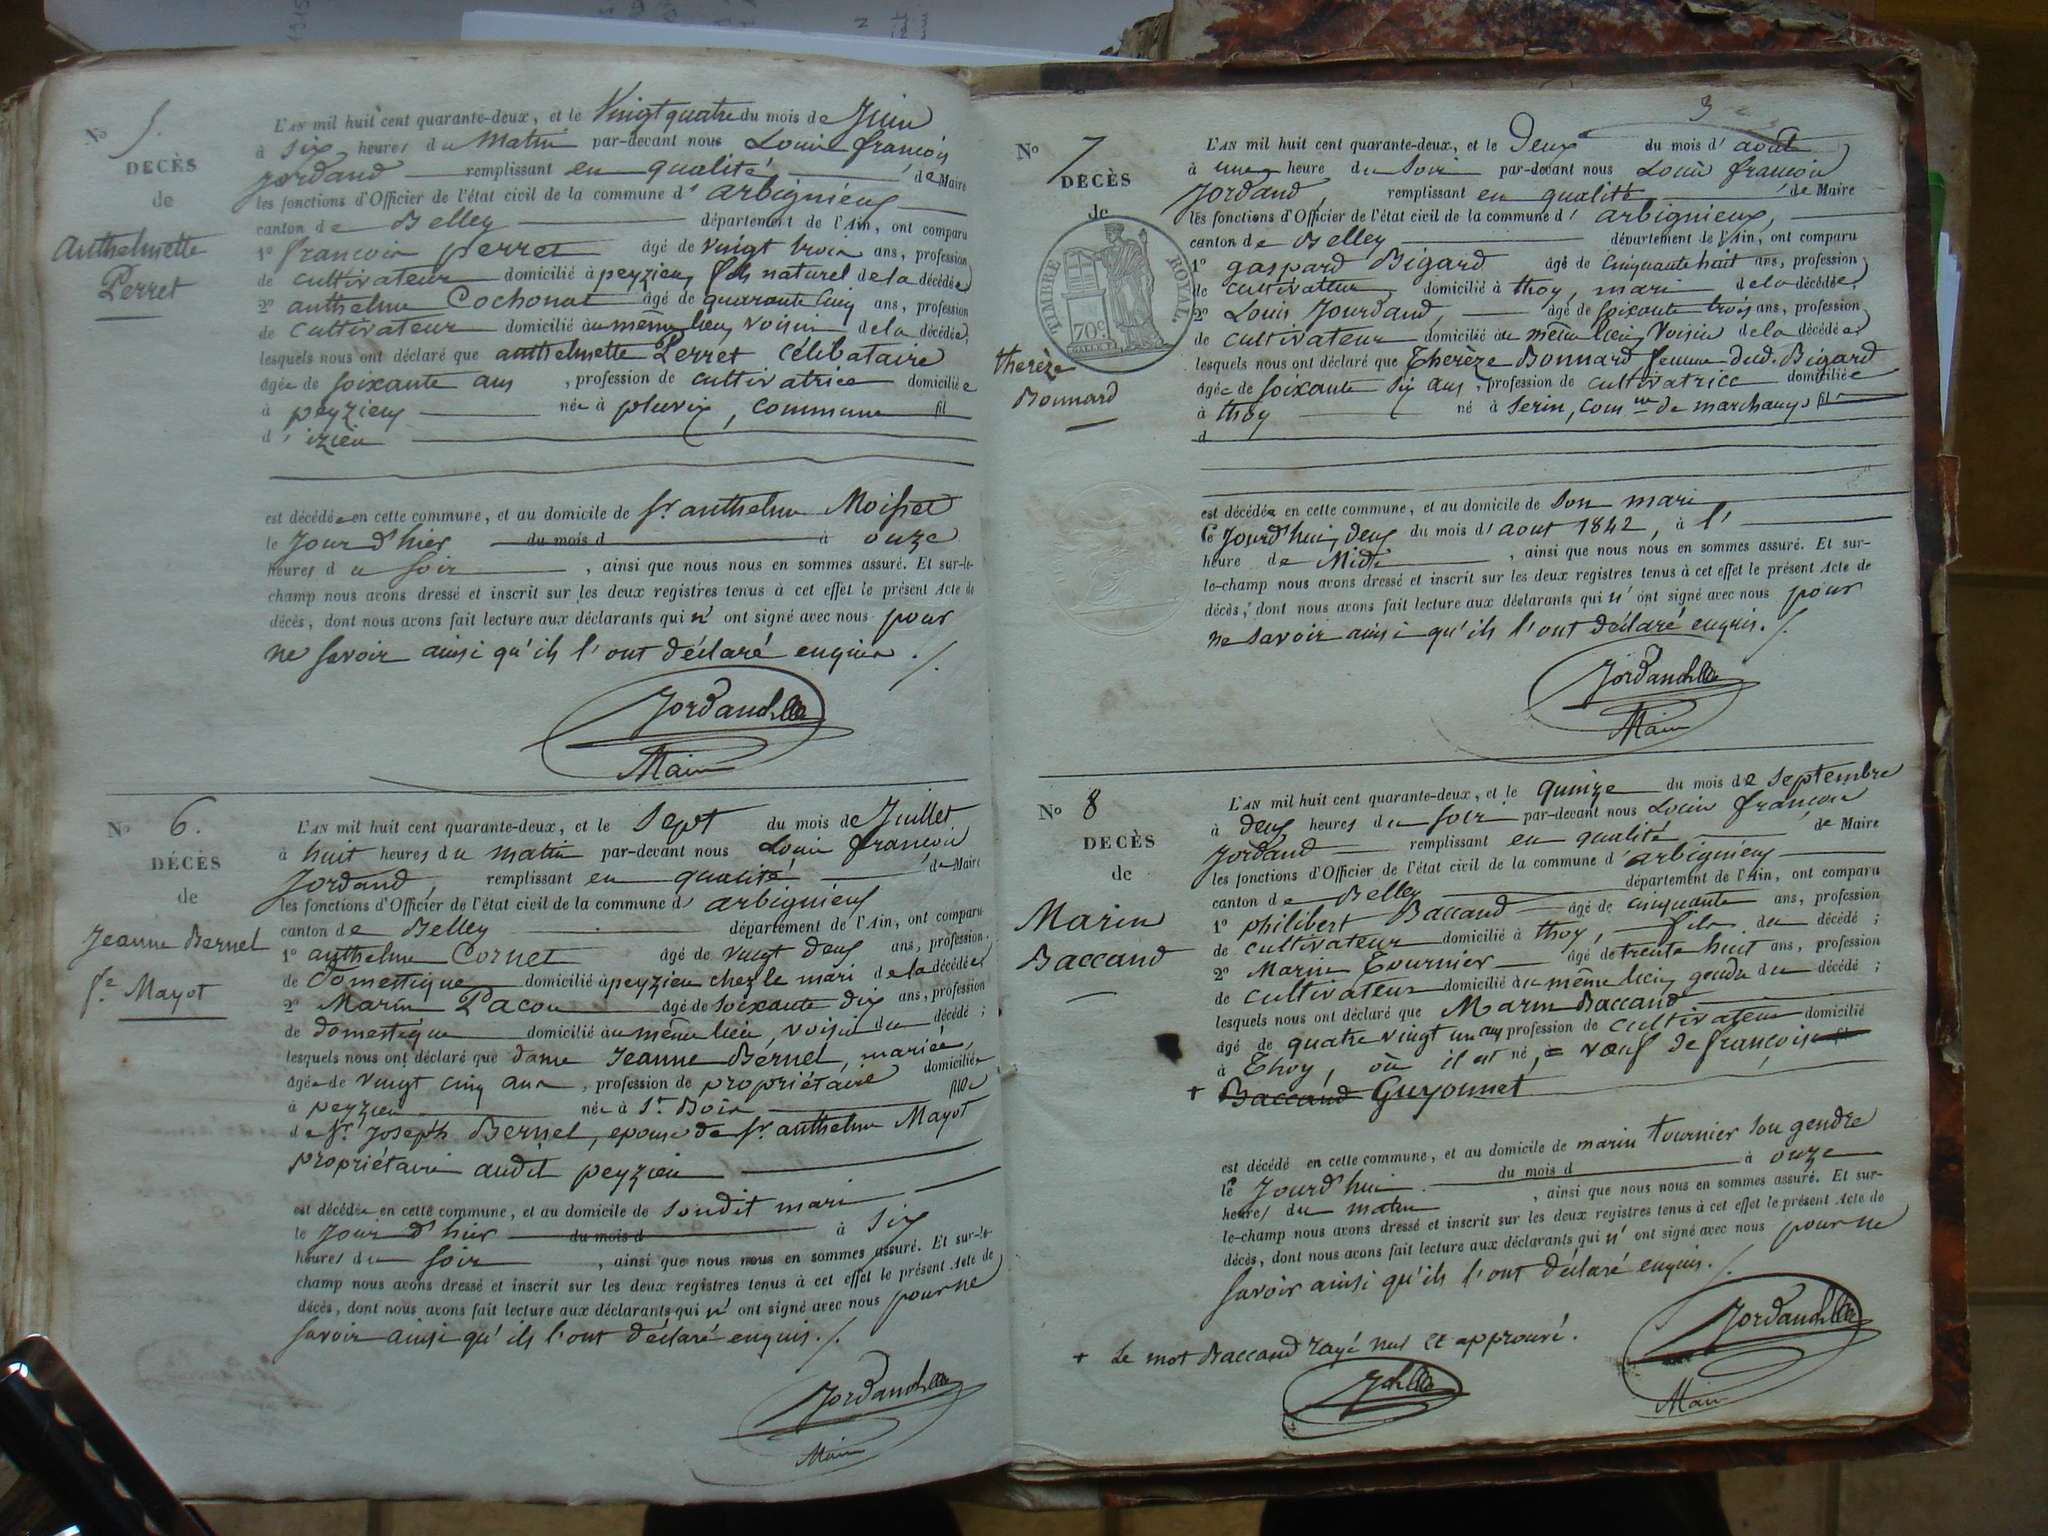 No 5.
DECÈS
de
Anthelmette
Perret
L'AN mil huit cent quarante-deux, et le Vingt quatre du mois de Juin
à six heures du Matin par-devant nous Louis françois
Jordand remplissant en qualité de Maire
les fonctions d'Officier de l'état civil de la commune d'arbignieux
canton de Belley département de l'Ain, ont comparu
1º françois perret âgé de vingt trois ans, profession
de cultivateur domicilié à peyzieu, fils naturel de la décédée
2º anthelme Cochonat âgé de quarante cinq ans, profession
de cultivateur domicilié au même lieu, voisin de la décédée,
lesquels nous ont déclaré que anthelmette Perret célibataire
âgée de soixante ans, profession de cultivatrice domiciliée
à peyzieu née à pluvix, commune fil
d'izieu
est décédée en cette commune, et au domicile de sr. anthelme
le Jour d'hier du mois d à onze
heures du soir, ainsi que nous nous en sommes assuré. Et sur-le-
champ nous avons dressé et inscrit sur les deux registres tenus à cet effet le présent Acte de
décès, dont nous avons fait lecture aux déclarants qui n'ont signé avec nous pour
ne savoir ainsi qu'ils l'ont déclaré enquis ./.
Jordand
Maire
No 6.
DÉCÈS
de
Jeanne Bernel
fe Mayot
L'AN mil huit cent quarante-deux, et le sept du mois de Juillet
à huit heures du matin par-devant nous Louis françois
Jordand, remplissant en qualité de Maire
les fonctions d'Officier de l'état civil de la commune d'arbignieux
canton de Belley département de l'Ain, ont comparu
1º anthelme Cornet âgé de vingt deux ans, profession
de Domestique domicilié à peyzieu chez le mari de la décédée
2º Marin Pacou âgé de soixante dix ans, profession
de domestique domicilié au même lieu, voisin du décédé ;
lesquels nous ont déclaré que dame Jeanne Bernel, mariée,
âgée de vingt cinq ans, profession de propriétaire domiciliée
à peyzieu née à St. Bois fille
de sr. Joseph Bernel, epouse de sr. anthelme Mayot
propriétaire audit peyzieu
est décédée en cette commune, et au domicile de sondit mari
le Jour d'hier du mois d à six
heures du soir, ainsi que nous nous en sommes assuré. Et sur-le-
champ nous avons dressé et inscrit sur les deux registres tenus à cet effet le présent Acte de
décès, dont nous avons fait lecture aux déclarants qui n'ont signé avec nous pour ne
savoir ainsi qu'ils l'ont déclaré enquis ./.
Jordand
Maire
3
No 7
DÉCÈS
de
TIMBRE ROYAL.
70c
therèze
Bonnard
L'AN mil huit cent quarante-deux, et le Deux du mois d'août
à une heure du Soir par-devant nous Louis françois
Jordand, remplissant en qualité de Maire
les fonctions d'Officier de l'état civil de la commune d'arbignieux,
canton de Belley département de l'Ain, ont comparu
1º gaspard Bigard âgé de cinquante huit ans, profession
de cultivateur domicilié à thoy, mari de la décédée,
2º Louis Jourdand, âgé de soixante trois ans, profession
de cultivateur domicilié au même lieu, voisin de la décédée,
lesquels nous ont déclaré que Therèze Bonnard femme dud. Bigard
âgée de soixante six ans, profession de cultivatrice domiciliée
à thoy né à serin, comne de marchamp fil
d
est décédée en cette commune, et au domicile de son mari
le Jourd'hui, deux du mois d'aout 1842, à l'
heure de Midi, ainsi que nous nous en sommes assuré. Et sur-
le-champ nous avons dressé et inscrit sur les deux registres tenus à cet effet le présent Acte de
décès, dont nous avons fait lecture aux déclarants qui n'ont signé avec nous pour
ne savoir ainsi qu'ils l'ont déclaré enquis ./.
Jordand
Maire
No 8
DÉCÈS
de
Marin
Baccand
L'AN mil huit cent quarante-deux, et le quinze du mois de septembre
à deux heures du soir par-devant nous Louis françois
Jordand remplissant en qualité de Maire
les fonctions d'Officier de l'état civil de la commune d'arbignieux
canton de Belley département de l'Ain, ont comparu
1º philibert Baccand âgé de cinquante ans, profession
de cultivateur domicilié à thoy, fils du décédé ;
2º Marin Tournier âgé de trente huit ans, profession
de cultivateur domicilié au même lieu, gendre du décédé ;
lesquels nous ont déclaré que Marin Baccand
âgé de quatre vingt un ans profession de cultivateur domicilié
à Thoy, où il est né, veuf de françoise fil
+ Baccand Guyonnet
est décédé en cette commune, et au domicile de marin tournier son gendre
le Jourd'hui du mois d à onze
heures du matin, ainsi que nous nous en sommes assuré. Et sur-
le-champ nous avons dressé et inscrit sur les deux registres tenus à cet effet le présent Acte de
décès, dont nous avons fait lecture aux déclarants qui n'ont signé avec nous pour ne
savoir ainsi qu'ils l'ont déclaré enquis ./.
Jordand
Maire
+ Le mot Baccand rayé nul et approuvé.